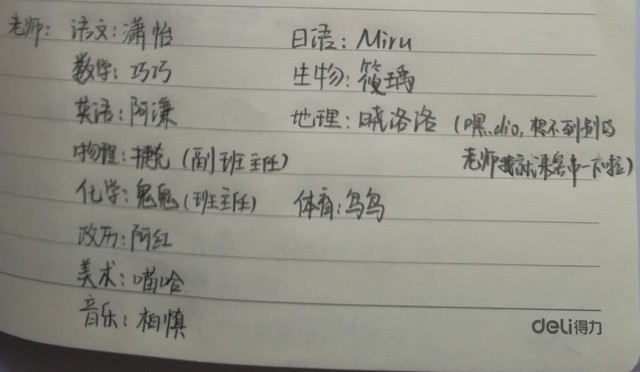 老师: 语文: 潇怡 日语: Miru
数学: 巧巧 生物: 筱瑀
英语: 阿濂 地理: 晓洛洛 (嘿、dio, 想不到别的
物理: 捷克 (副班主任) 老师我就来客串一下啦)
化学: 鬼鬼 (班主任) 体育: 鸟鸟
政历: 阿红
美术: 喵哈
音乐: 相慎
deli得力